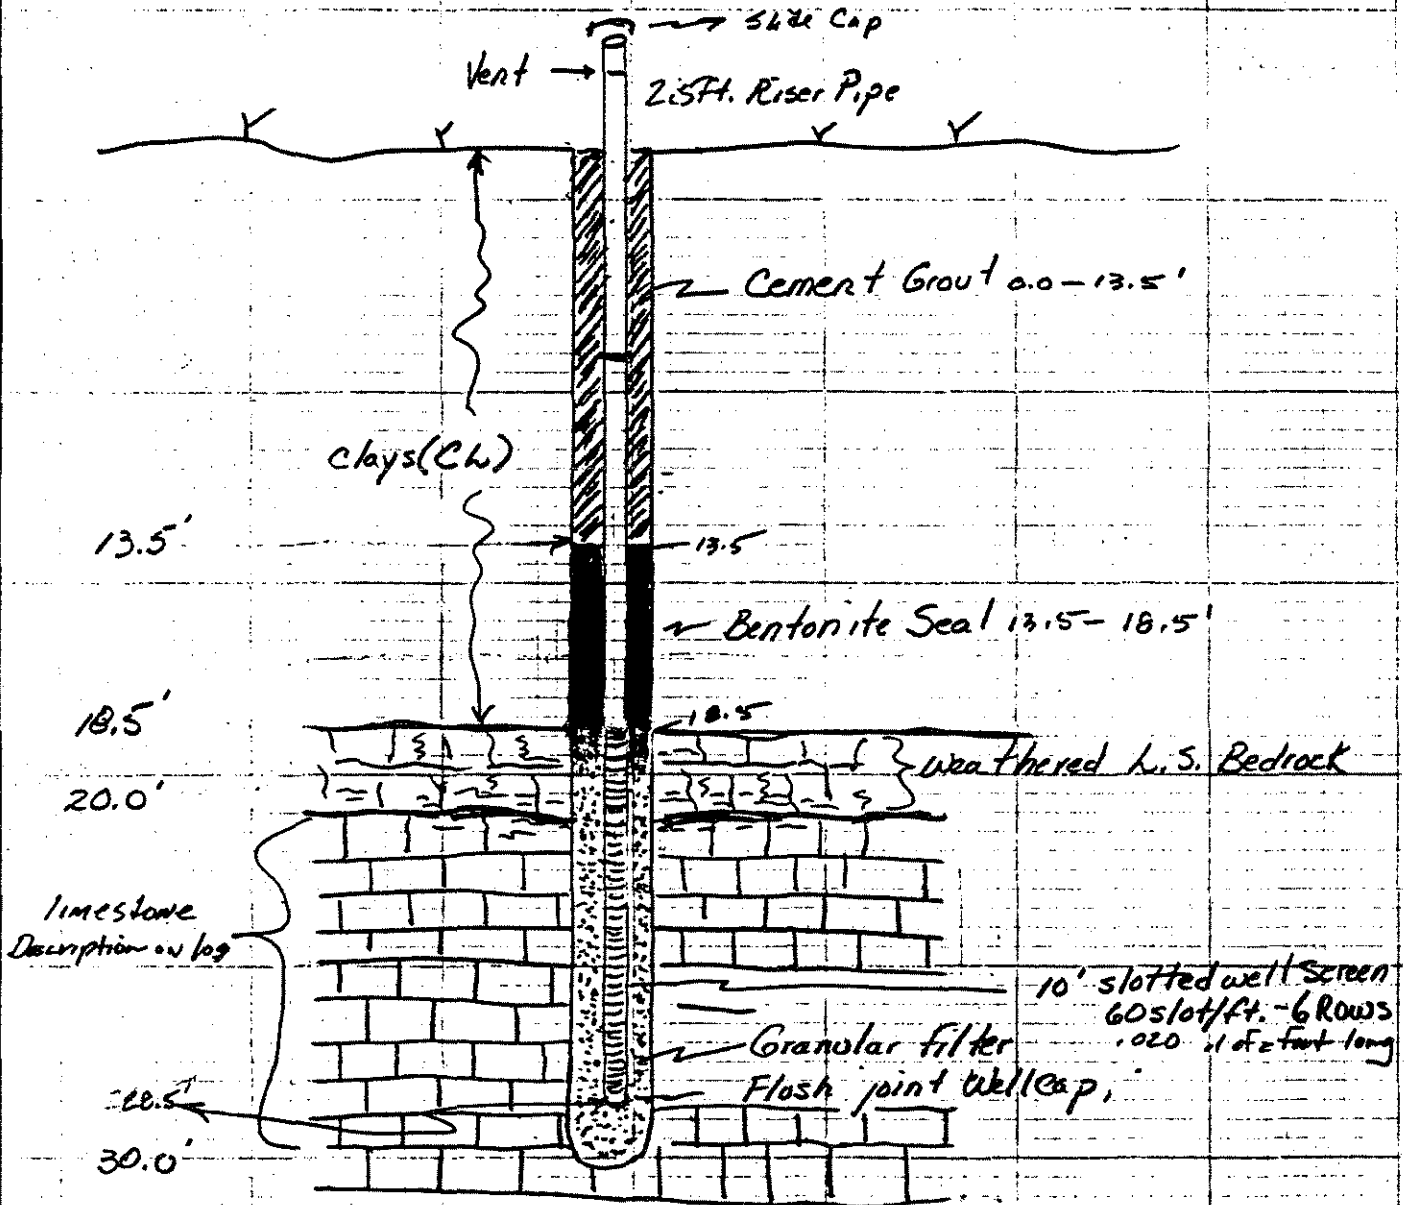 Slide Cap
Vent
2.5Ft. Riser Pipe
Cement Grout 0.0-13.5'
Clays(CL)
13.5'
13.5
Bentonite Seal 13.5-18.5'
18.5'
18.5
Weathered L.S. Bedrock
20.0'
limestone
Description on log
10' slotted well screen
60slot/ft.-6 Rows
.020 .1 of foot long
Granular filter
Flush joint Well Cap,
28.5'
30.0'